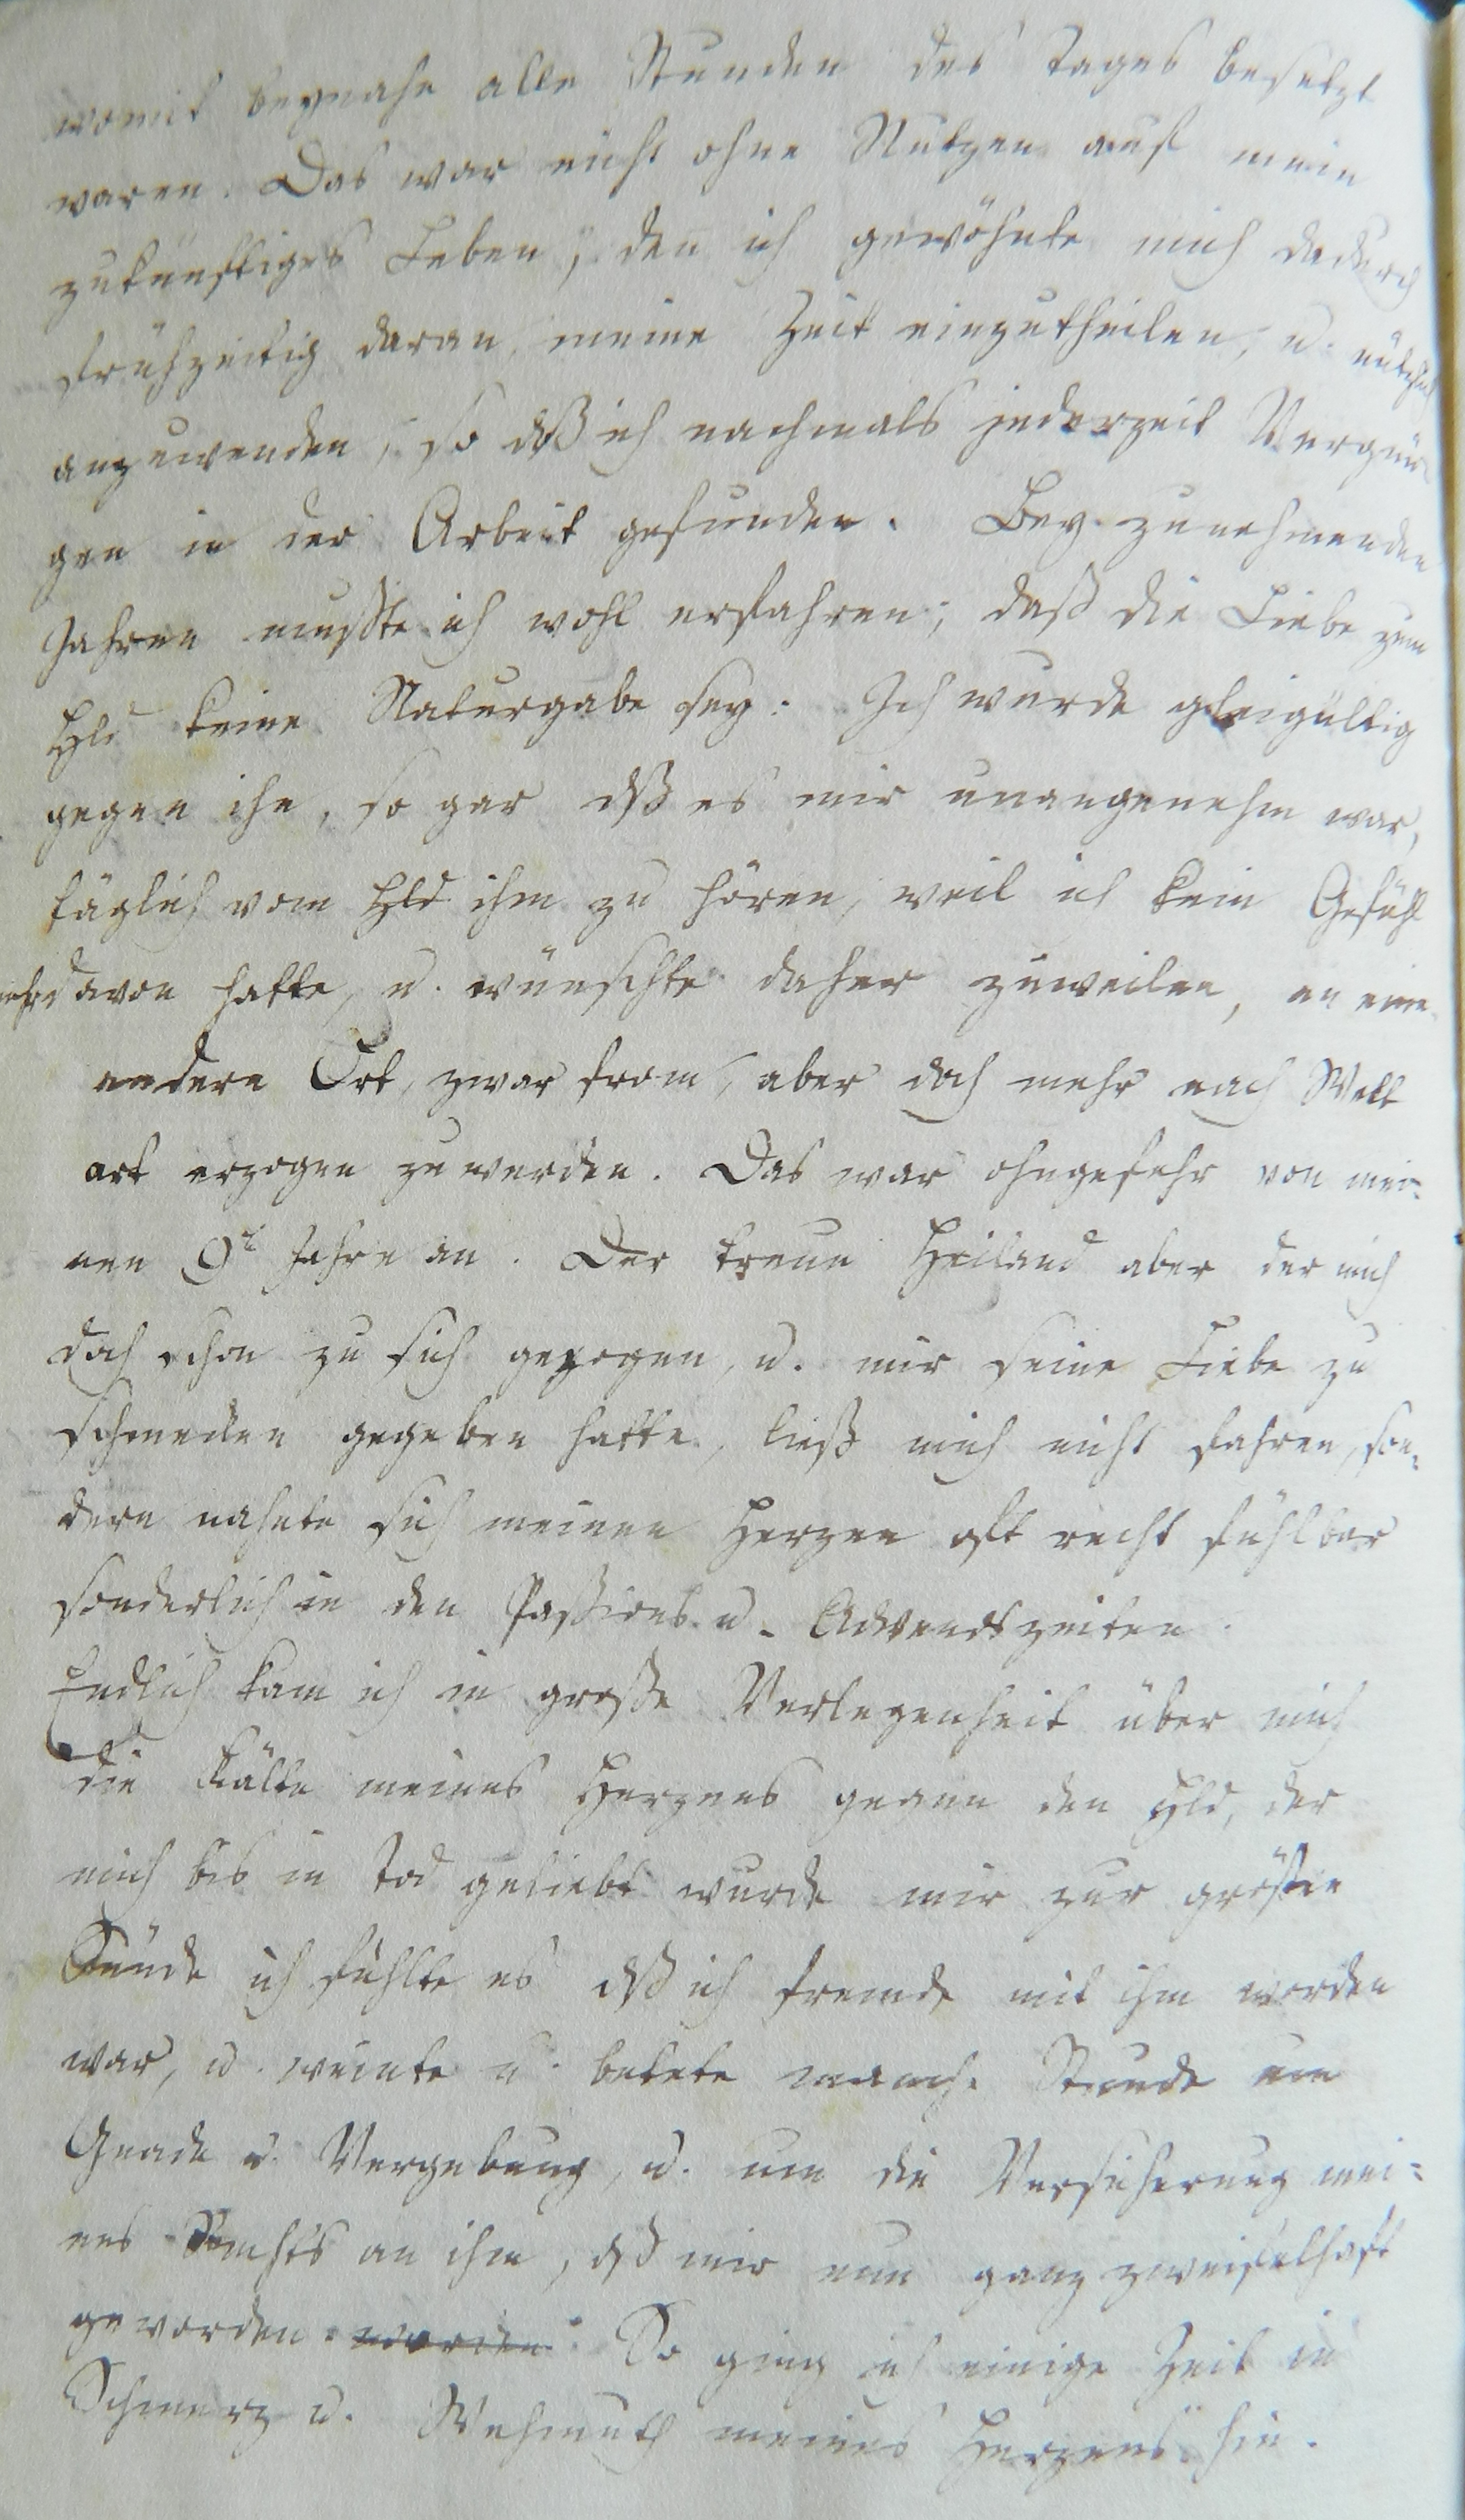 womit beynahe alle Stunden des Tages besetzt
waren. Das war nicht ohne Nutzen auf mein
zukünftiges Leben, den ich gewöhnte mich dadurch
frühzeitig daran, meine Zeit einzutheilen, u. nützlich
anzuwenden, so dß ich nachmals jederzeit Vergnü
gen in der Arbeit gefunden. Bey zunehmenden
Jahren mußte ich wohl erfahren, daß die Liebe zum
Hld keine Naturgabe sey. Ich wurde gleigültig
gegen ihn, so gar dß es mir unangenehm war,
täglich vom Hld ihm zu hören, weil ich kein Gefühl
mehr davon hatte, u. wünschte daher zuweilen, an eine
andern Ort, zwar from, aber doch mehr nach Welt
art erzogen zu werden. Das war ohngefehr von mei-
nen 9t Jahre an. Der treue Heiland aber der mich
doch schon zu sich gezogen, u. mir seine Liebe zu
schmecken gegeben hatte, ließ mich nicht fahren, son-
dern nahete sich meinen Herzen oft recht fühlbar
sonderlich in den Paßions- u. Adventszeiten.
Endlich kam ich in große Verlegenheit über mich
die Kälte meines Herzens gegen den Hld, der
mich bis in Tod geliebt wurde mir zur größten
Sünde ich fühlte es dß ich fremde mit ihm worden
war, u. weinte u. betete manche Stunde um
Gnade u. Vergebung, u. um die Versicherung mei-
nes Rechts an ihm, dß mir nun ganz zweifelhaft
geworden. worden. So ging ich einige Zeit in
Schmerz u. Wehmuth meines Herzens hin.